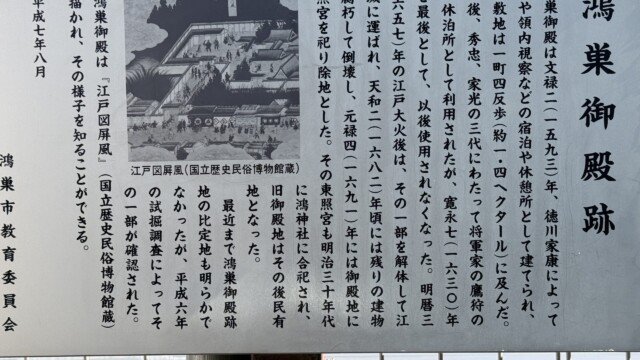 鴻巣御殿跡
巣御殿は文禄二(一五九三)年、徳川家康によって
や領内視察などの宿泊や休憩所として建てられ、
敷地は一町四反歩(約一・四ヘクタール)に及んだ。
後、秀忠、家光の三代にわたって将軍家の鷹狩の
休泊所として利用されたが、寛永七(一六三〇)年
を最後として、以後使用されなくなった。明暦三
六五七)年の江戸大火後は、その一部を解体して江
城に運ばれ、天和二(一六八二)年頃には残りの建物
腐朽して倒壊し、元禄四(一六九一)年には御殿地に
照宮を祀り除地とした。その東照宮も明治三十年代
に鴻神社に合祀され、
旧御殿地はその後民有
地となった。
最近まで鴻巣御殿跡
地の比定地も明らかで
なかったが、平成六年
の試掘調査によってそ
の一部が確認された。
江戸図屏風(国立歴史民俗博物館蔵)
鴻巣御殿は『江戸図屏風』(国立歴史民俗博物館蔵)
描かれ、その様子を知ることができる。
平成七年八月
鴻巣市教育委員会